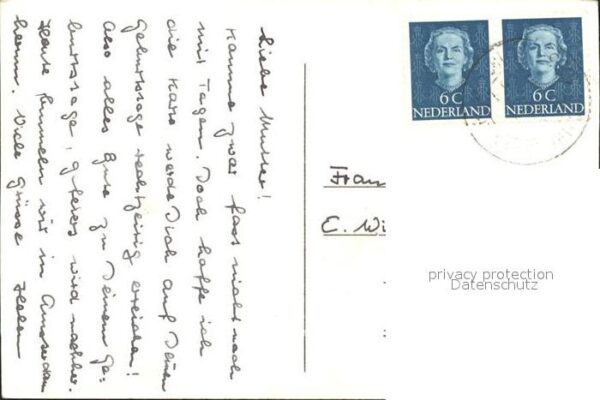 Liebe Mutter!
Komme zwar fast nicht nach
mit Tagen. Doch hoffe ich
die Karte werde Dich auf Deinen
Geburtstage rechtzeitig erreichen!
Also alles Gute zu Deinem Ge-
burtstage, gefeiert wird nachher.
Heute bummeln wir in Amsterdam
herum. Viele Grüsse Helen
6 C
NEDERLAND
6 C
NEDERLAND
Frau
E. Wi
privacy protection
Datenschutz